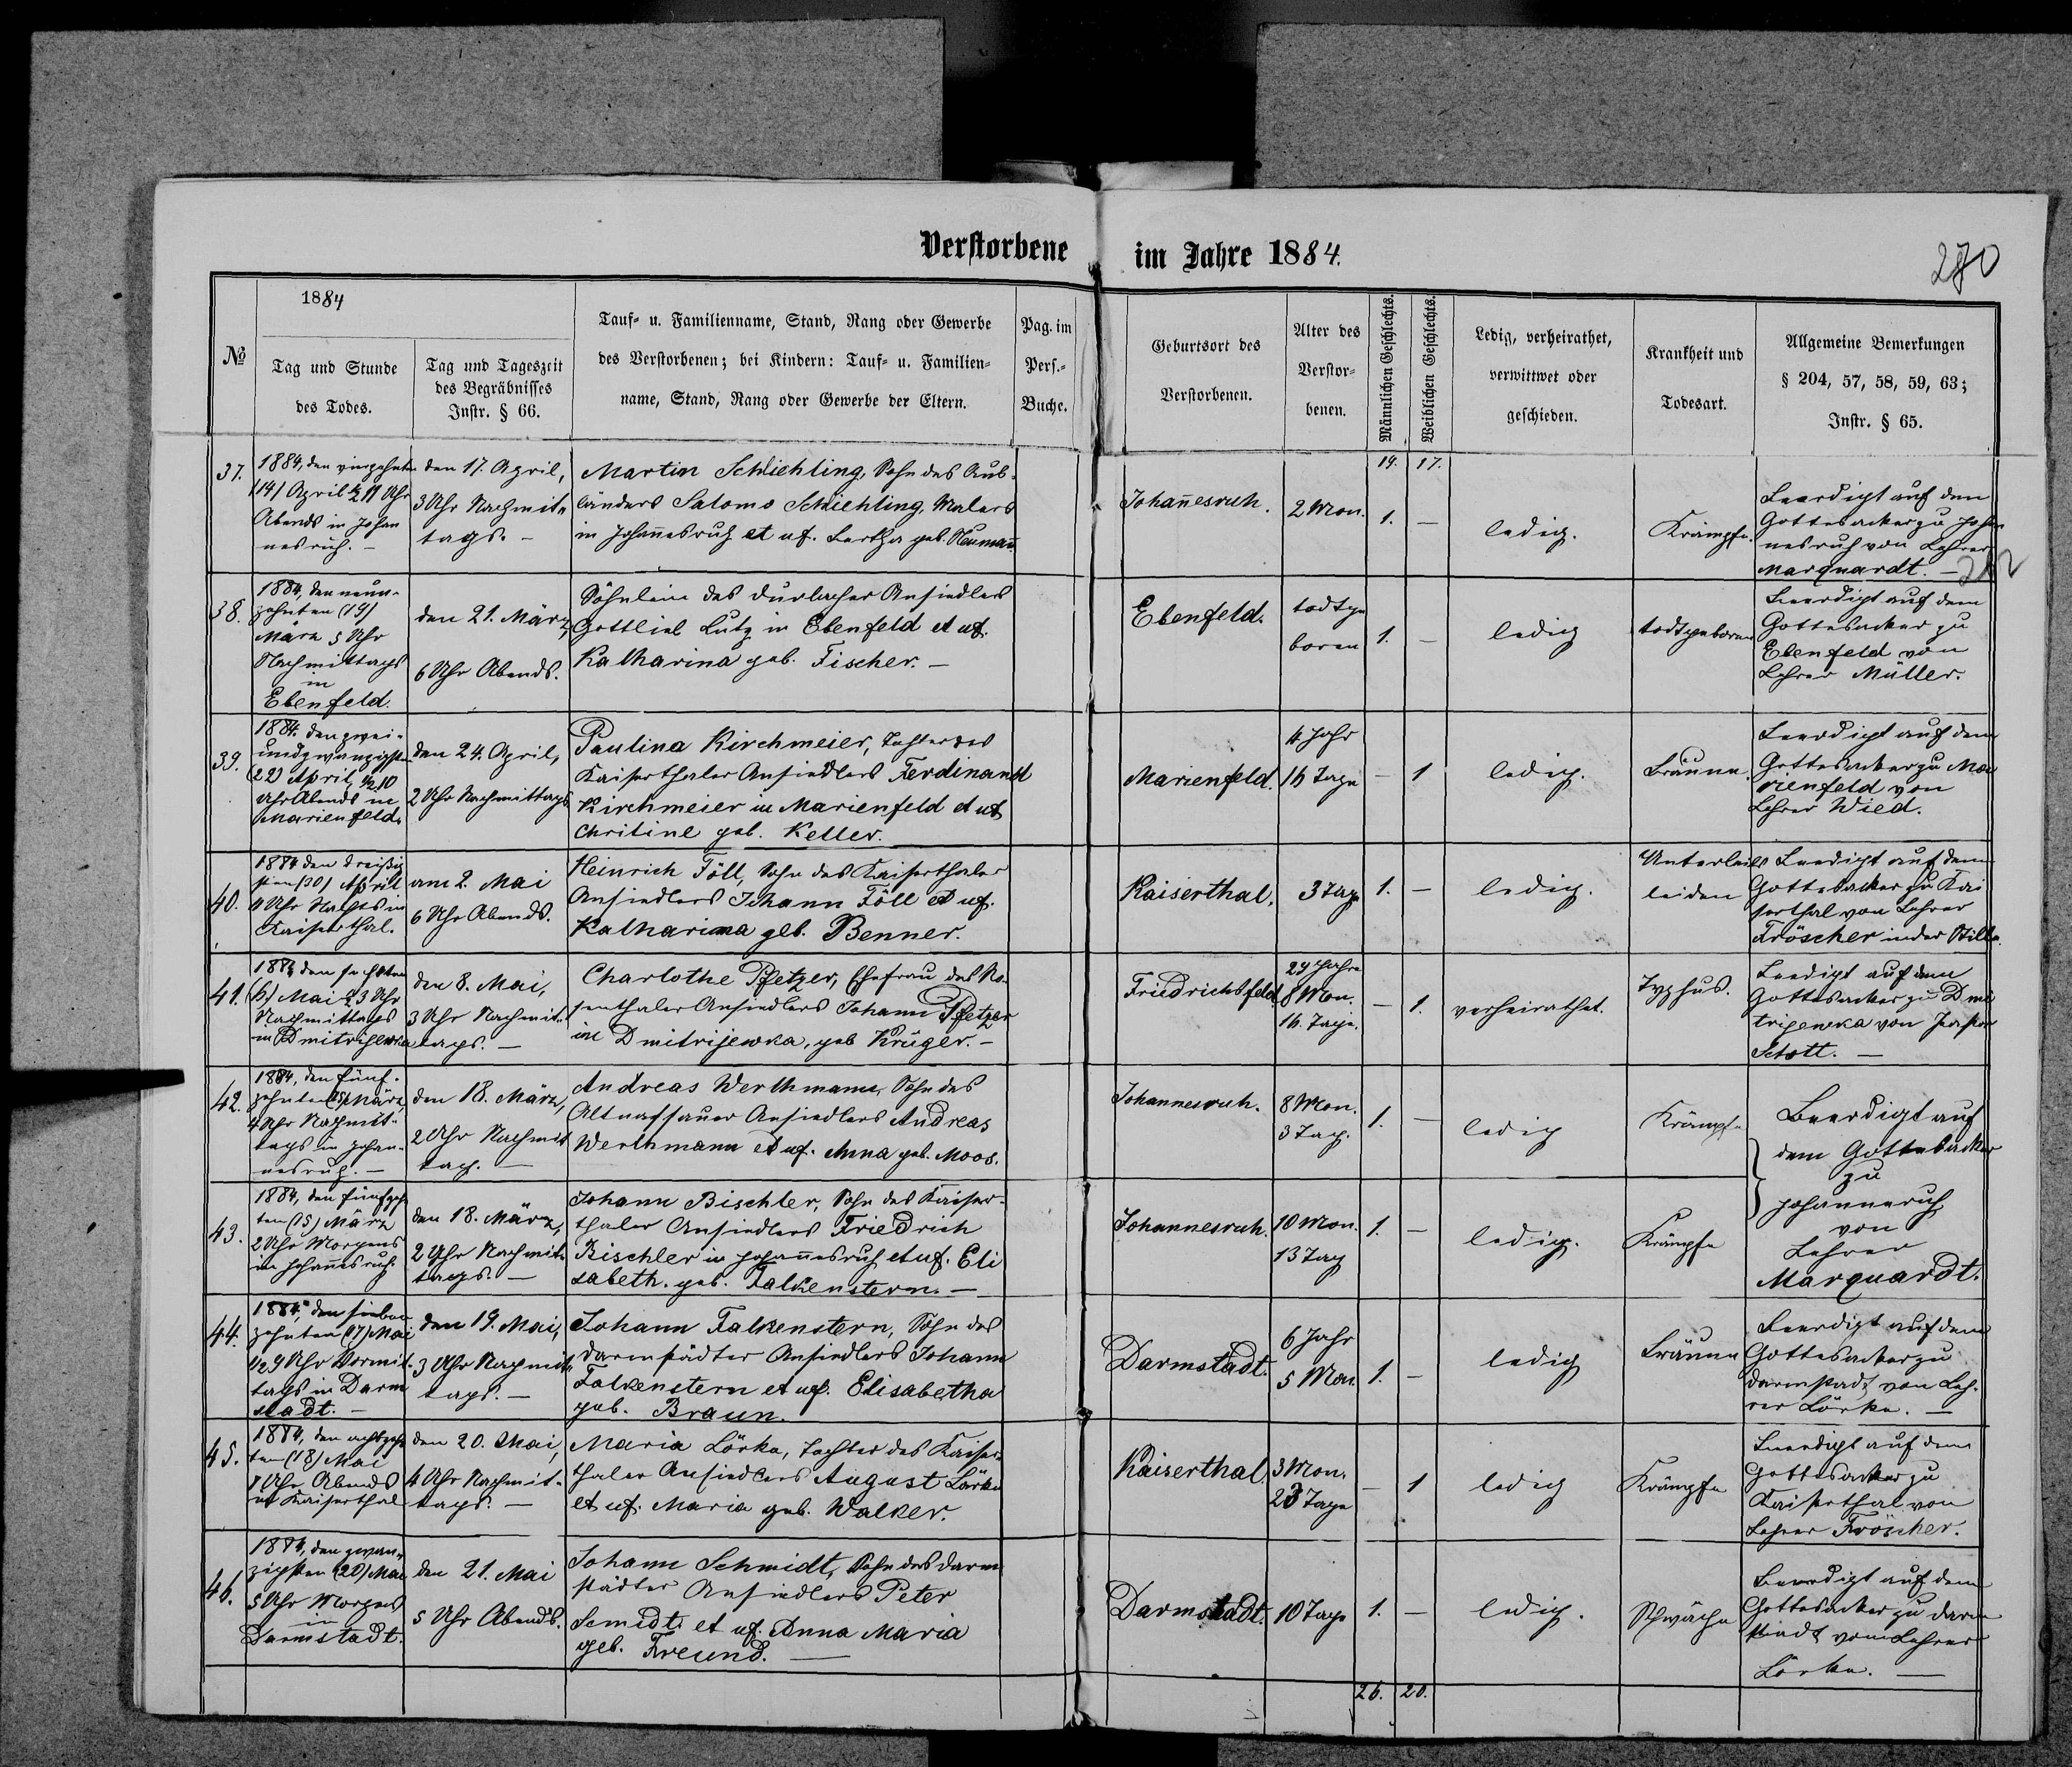 Verstorbene im Jahre 1884.
280
1884
№
Tag und Stunde
des Todes.
Tag und Tageszeit
des Begräbnisses
Instr. § 66.
Tauf- u. Familienname, Stand, Rang oder Gewerbe
des Verstorbenen; bei Kindern: Tauf- u. Familien-
name, Stand, Rang oder Gewerbe der Eltern.
Pag. im
Pers.-
Buche.
Geburtsort des
Verstorbenen.
Alter des
Verstor-
benen.
Männlichen Geschlechts.
Weiblichen Geschlechts.
Ledig, verheirathet,
verwittwet oder
geschieden.
Krankheit und
Todesart.
Allgemeine Bemerkungen
§ 204, 57, 58, 59, 63;
Instr. § 65.
19. 17.
37.
1884, den vierzehnten
(14) April ½ 11 Uhr
Abends in Johan
nesruh. –
den 17. April,
3 Uhr Nachmit-
tags. –
Martin Schlichting, Sohn des Aus-
länders Salomo Schlichting, Malers
in Johannesruh et ux. Bertha geb. Neumann
Johannesruh.
2 Mon.
1.
–
ledig.
Krämpfe.
Beerdigt auf dem
Gottesacker zu Johan
nesruh von Lehrer
Marquardt. –
38.
1884, den neun-
zehnten (19)
März 5 Uhr
Nachmittags
in
Ebenfeld.
den 21. März,
6 Uhr Abends.
Söhnlein des Durlacher Ansiedlers
Gottlieb Lutz in Ebenfeld et ux.
Katharina geb. Fischer. –
Ebenfeld.
todtge
boren
1.
–
ledig
todtgeboren
Beerdigt auf dem
Gottesacker zu
Ebenfeld von
Lehrer Müller.
39.
1884. den zwei-
undzwanzigsten
(22) April, ½ 10
Uhr Abends in
Marienfeld.
den 24. April,
2 Uhr Nachmittags
Paulina Kirchmeier, Tochter des
Kaiserthaler Ansiedlers Ferdinand
Kirchmeier in Marienfeld et ux
Christine geb. Keller.
Marienfeld.
4 Jahr
16 Tage
–
1
ledig.
Bräune.
Beerdigt auf dem
Gottesacker zu Ma
rienfeld von
Lehrer Wied.
40.
1884 den dreißig
sten (30) April
Uhr Nachts in
Kaiserthal.
am 2. Mai
6 Uhr Abends.
Heinrich Föll, Sohn des Kaiserthaler
Ansiedlers Johann Föll et ux.
Katharina geb. Benner.
Kaiserthal.
3 Tage
1.
–
ledig.
Unterleibs
leiden
Beerdigt auf dem
Gottesacker zu Kai
serthal von Lehrer
Fröscher in der Stille.
41.
1884 den sechsten
(6) Mai ½ 3 Uhr
Nachmittags
in Dmitrijewka
den 8. Mai,
3 Uhr Nachmit-
tags. –
Charlothe Pfetzer, Ehefrau des Ro-
senthaler Ansiedlers Johann Pfetzer
in Dmitrijewka, geb Krüger. –
Friedrichsfeld
29 Jahre
8 Mon.
16. Tage.
–
1.
verheirathet.
Typhus.
Beerdigt auf dem
Gottesacker zu Dmi
trijewka von Pastor
Schott. –
42.
1884, den fünf-
zehnten (15) März,
4 Uhr Nachmit-
tags in Johan-
nesruh. –
den 18. März,
2 Uhr Nachmit
tag. –
Andreas Werthmann, Sohn des
Altnassauer Ansiedlers Andreas
Werthmann et ux. Anna geb. Moos.
Johannesruh.
8 Mon.
3 Tag.
1.
–
ledig
Krämpfe
Beerdigt auf
dem Gottesacker
zu
Johannesruh
von
Lehrer
Marquardt.
43.
1884, den fünfzehn
ten (15) März
2 Uhr Morgens
in Johannesruh.
den 18. März,
2 Uhr Nachmit-
tags. –
Johann Bischler, Sohn des Kaiser-
thaler Ansiedlers Friedrich
Bischler in Johannesruh et ux. Eli
sabeth. geb. Falkenstern. –
Johannesruh.
10 Mon.
13 Tag
1.
–
ledig.
Krämpfe
44.
1884, den sieben
zehnten (17) Mai
½ 9 Uhr Vormit-
tags in Darm
stadt. –
den 19. Mai,
3 Uhr Nachmit-
tags. –
Johann Falkenstern, Sohn des
Darmstädter Ansiedlers Johann
Falkenstern et ux. Elisabetha
geb. Braun.
Darmstadt.
6 Jahr
5 Mon.
1.
–
ledig
Bräune
Beerdigt auf dem
Gottesacker zu
Darmstadt von Leh-
rer Lörke. –
45.
1884, den achtzehn
ten (18) Mai
8 Uhr Abends
in Kaiserthal
den 20. Mai,
4 Uhr Nachmit-
tags. –
Maria Lörke, Tochter des Kaiser
thaler Ansiedlers August Lörke
et ux. Maria geb. Walker.
Kaiserthal.
3 Mon.
23 Tage
–
1
ledig
Krämpfe
Beerdigt auf dem
Gottesacker zu
Kaiserthal von
Lehrer Fröscher.
46.
1884, den zwan-
zigsten (20) Mai
5 Uhr Morgens
in
Darmstadt.
den 21. Mai
5 Uhr Abends.
Johann Schmidt, Sohn des Darm
städter Ansiedlers Peter
Schmidt et ux. Anna Maria
geb. Freund. –
Darmstadt.
10 Tage
1.
–
ledig.
Schwäche
Beerdigt auf dem
Gottesacker zu Darm
stadt vom Lehrer
Lörke. –
26. 20.